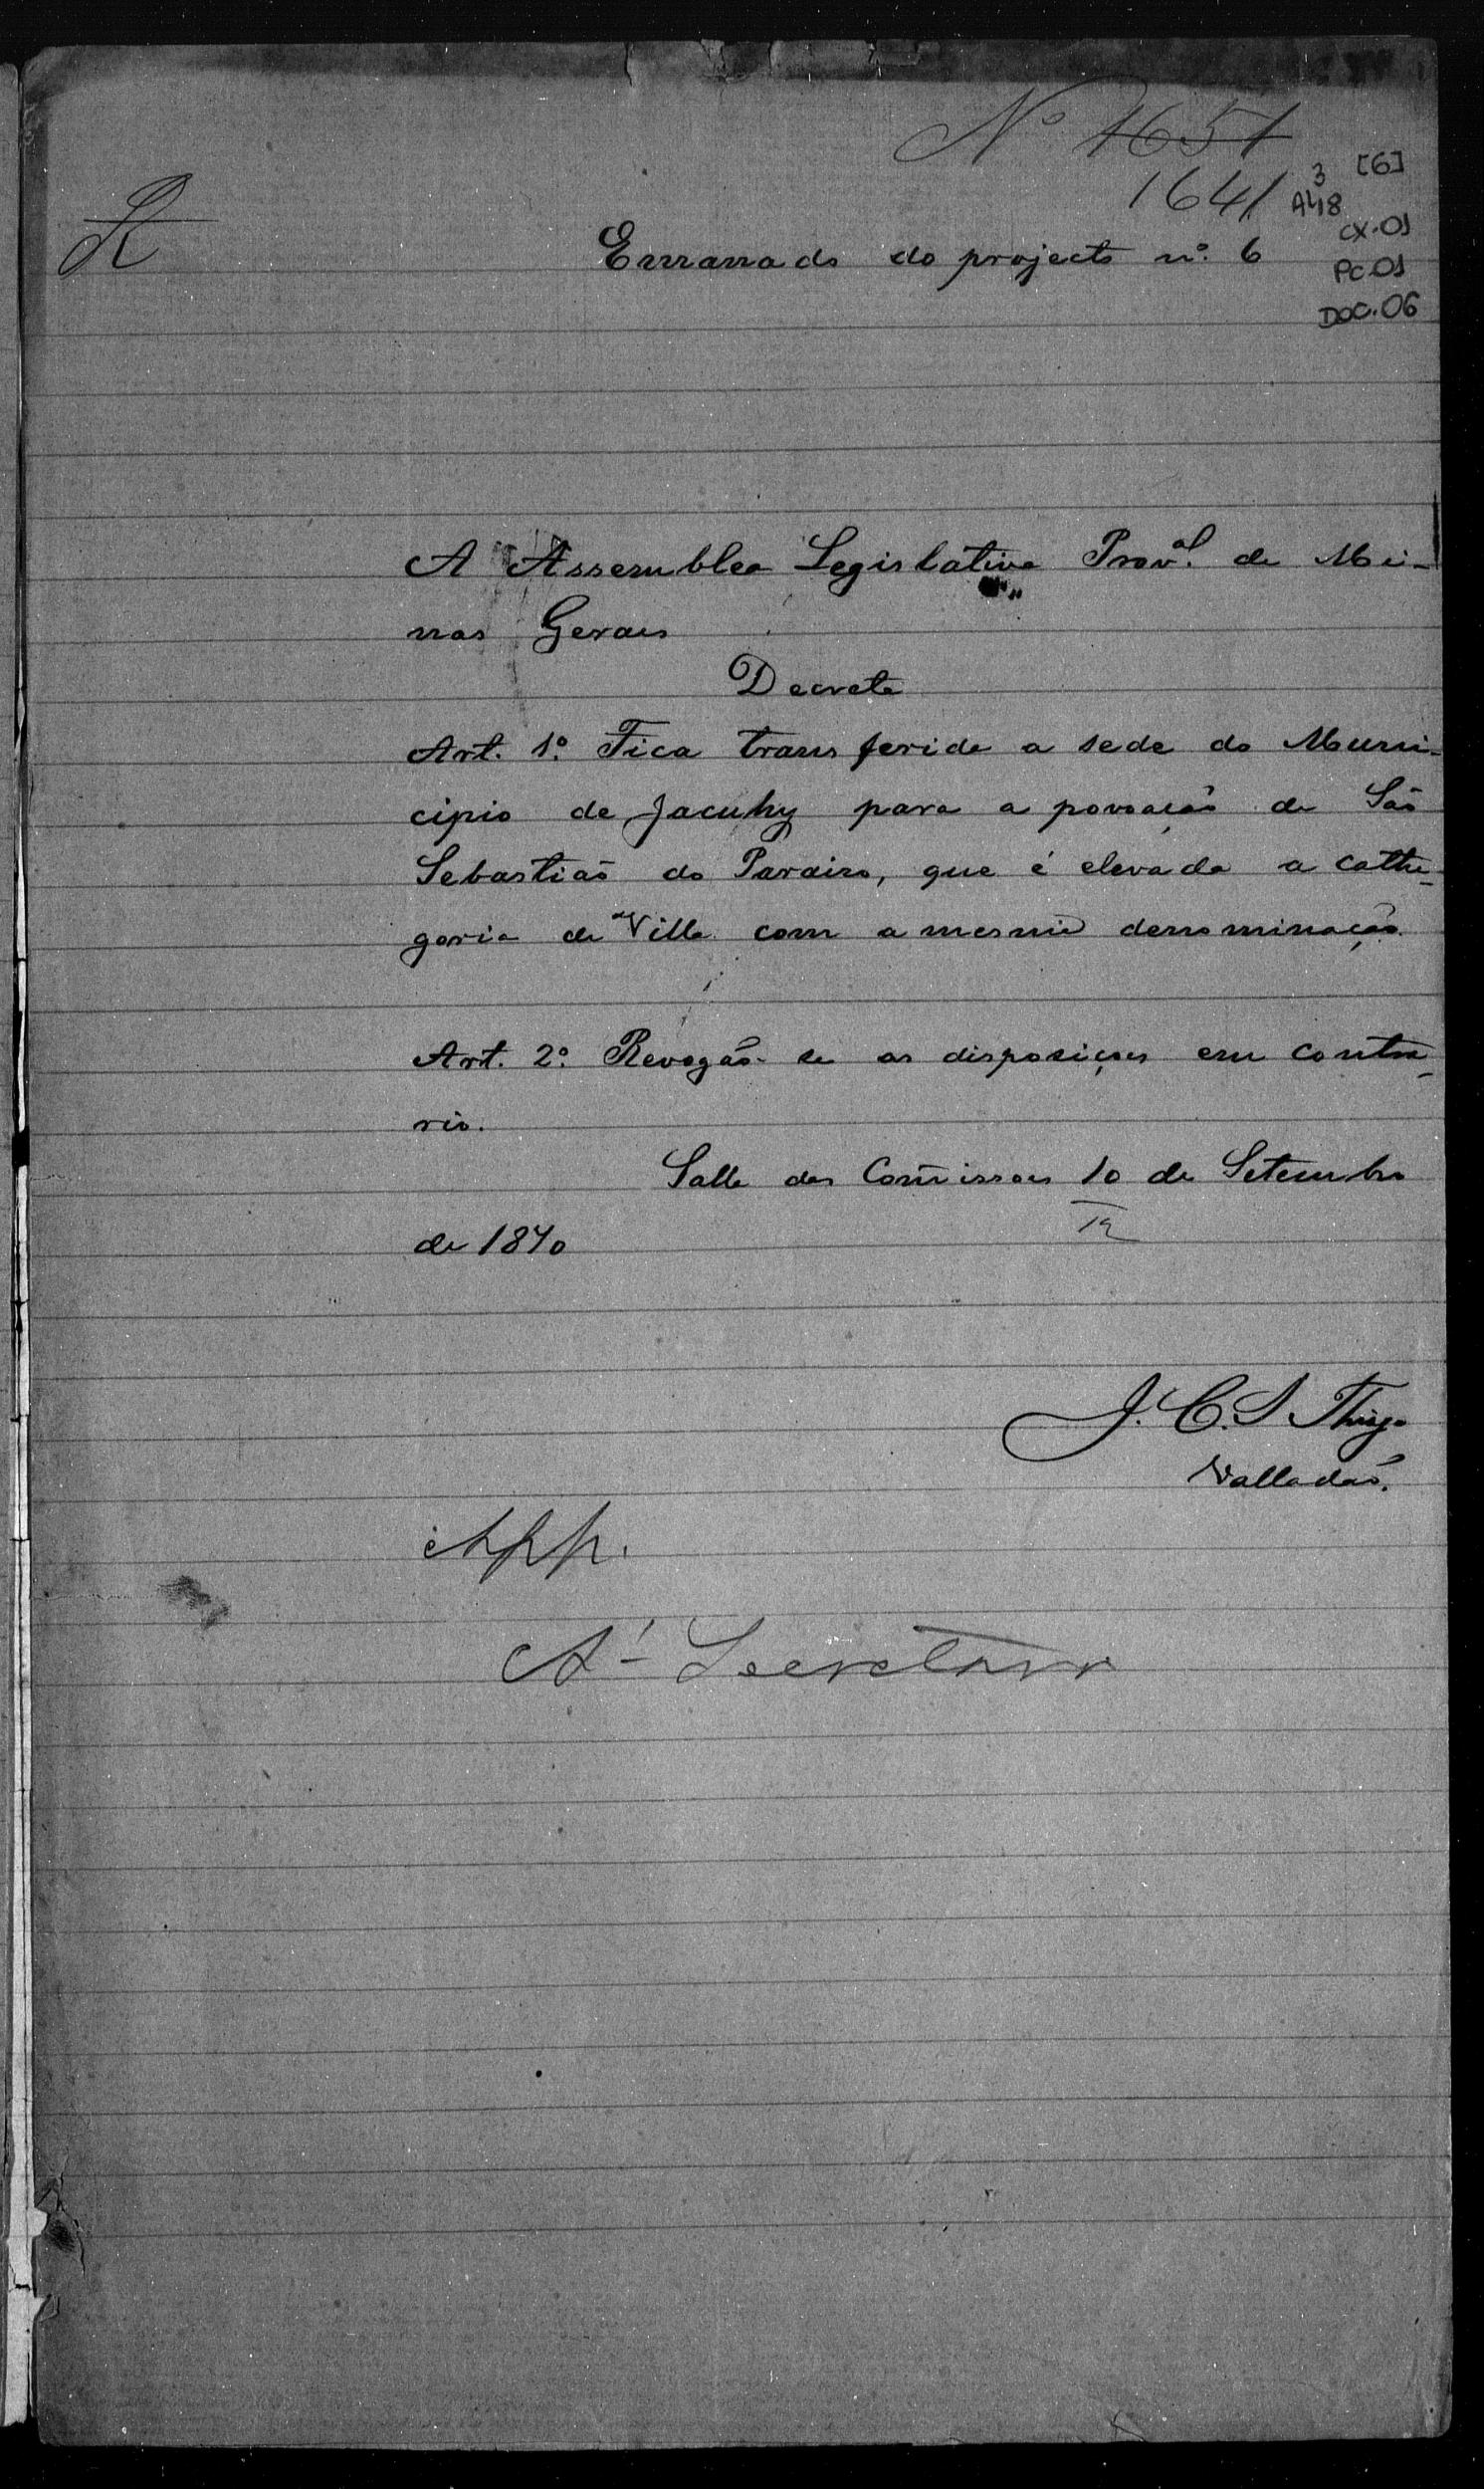 Nº 1651
1641
3 [6]
AL18
CX.01
PC.01
DOC.06
Emanado do projecto nº. 6
A Assemblea Legislativa Prov.al de Mi-
nas Geraes
Decreta
Art. 1º. Fica transferida a sede do Muni-
cipio de Jacuhy para a povoação de São
Sebastião do Paraiso, que é elevada a cathe-
goria de Villa com a mesma denominação.
Art. 2º. Revogão-se as disposições em contra-
rio.
Salla das Com̃issoes 10 de Setembro
de 1870
J. C. S Thiago
Valladão.
App.
A' Secretaria